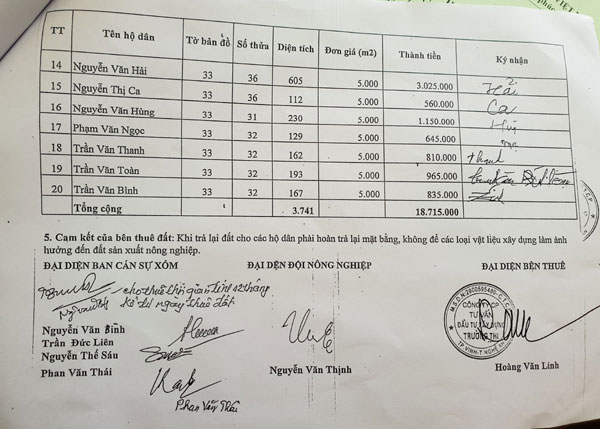 TT Tên hộ dân Tờ bản đồ Số thửa Diện tích Đơn giá (m2) Thành tiền Ký nhận
14 Nguyễn Văn Hải 33 36 605 5.000 3.025.000 Hải
15 Nguyễn Thị Ca 33 36 112 5.000 560.000 Ca
16 Nguyễn Văn Hùng 33 31 230 5.000 1.150.000
17 Phạm Văn Ngọc 33 32 129 5.000 645.000
18 Trần Văn Thanh 33 32 162 5.000 810.000
19 Trần Văn Toàn 33 32 193 5.000 965.000
20 Trần Văn Bình 33 32 167 5.000 835.000
Tổng cộng 3.741 18.715.000
5. Cam kết của bên thuê đất: Khi trả lại đất cho các hộ dân phải hoàn trả lại mặt bằng, không để các loại vật liệu xây dựng làm ảnh
hưởng đến đất sản xuất nông nghiệp.
ĐẠI DIỆN BAN CÁN SỰ XÓM ĐẠI DIỆN ĐỘI NÔNG NGHIỆP ĐẠI DIỆN BÊN THUÊ
cho thuê thời gian 12 tháng
kể từ ngày thuê đất
CÔNG TY CP
TƯ VẤN
ĐẦU TƯ XÂY DỰNG
TRƯỜNG THI
TP VINH-T NGHỆ AN
Nguyễn Văn Bình
Trần Đức Liên
Nguyễn Thế Sáu
Phan Văn Thái Nguyễn Văn Thịnh Hoàng Văn Linh
Phan Văn Thái